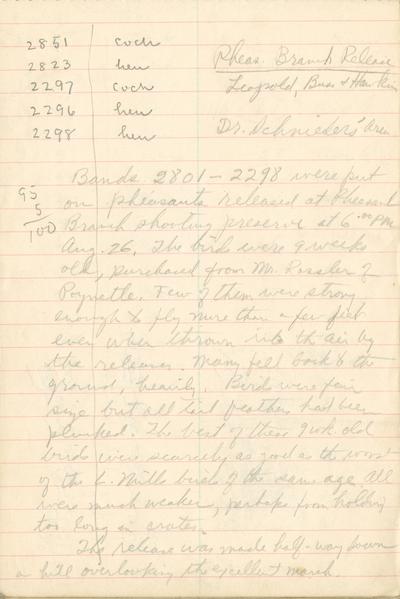 2851 cock
2823 hen
2297 cock
2296 hen
2298 hen
Pheas. Branch Release
Leopold, Buss & Hawkins
Dr. Schnieders' Area
95
5
100
Bands 2801-2298 were put
on pheasants released at Pheasant
Branch shooting preserve at 6:00 PM
Aug. 26. The birds were 9 weeks
old, purchased from Mr. Rossler of
Poynette. Few of them were strong
enough to fly more than a few feet
even when thrown into the air by
the releaser. Many fell back to the
ground, heavily. Birds were fair
size but all tail feathers had been
plucked. The best of these 9 wk old
birds were scarcely as good as the worst
of the L. Mills birds of the same age. All
were much weaker, perhaps from holding
too long in crates.
The release was made half-way down
a hill overlooking the excellent marsh.